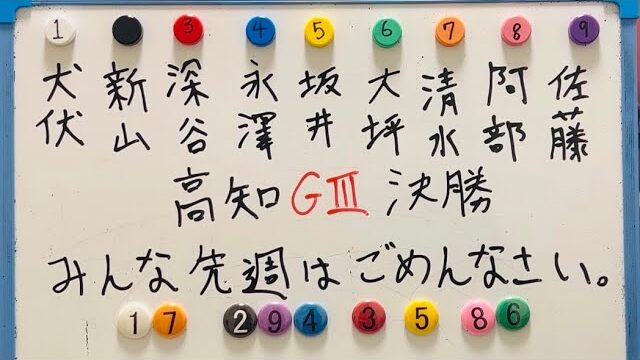 1 3 4 5 6 7 8 9
犬伏 新山 深谷 永澤 坂井 大坪 清水 阿部 佐藤
高知GⅢ決勝
みんな先週はごめんなさい。
1 7 2 9 4 3 5 8 6